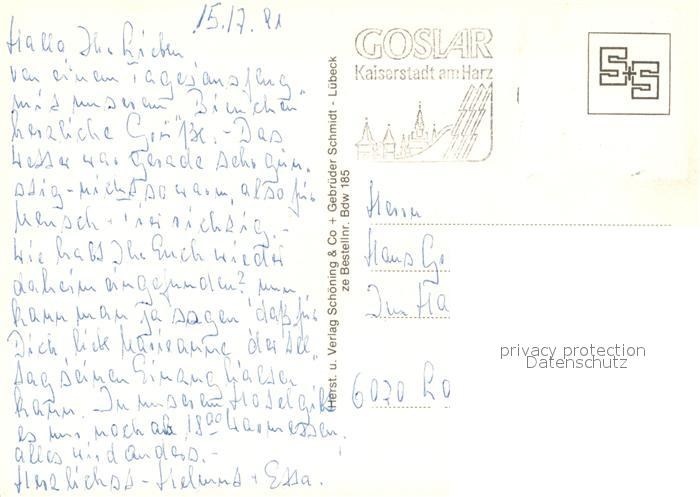 15.17.81
Hallo Ihr Lieben
von einem Tagesausflug
mit unserem "Bienchen"
herzliche Grüße. - Das
Wetter war gerade sehr gün-
stig - nicht so warm, also für
Mensch + richtig. -
Wie habt Ihr Euch wieder
daheim eingefunden? nun
kann man ja sagen daß für
Dich liebe Marianne, der
seinen Einzug halten
kann. In unserem Hotel gibt
es nur noch ab 18 00 Warmessen.
alles wird anders. -
Herzlichst - Helmut +
Herst. u. Verlag Schöning & Co + Gebrüder Schmidt - Lübeck
ze Bestellnr. Bdw 185
GOSLAR
Kaiserstadt am Harz
S+S
Herrn
Hans Ge
Im Ha
privacy protection
Datenschutz